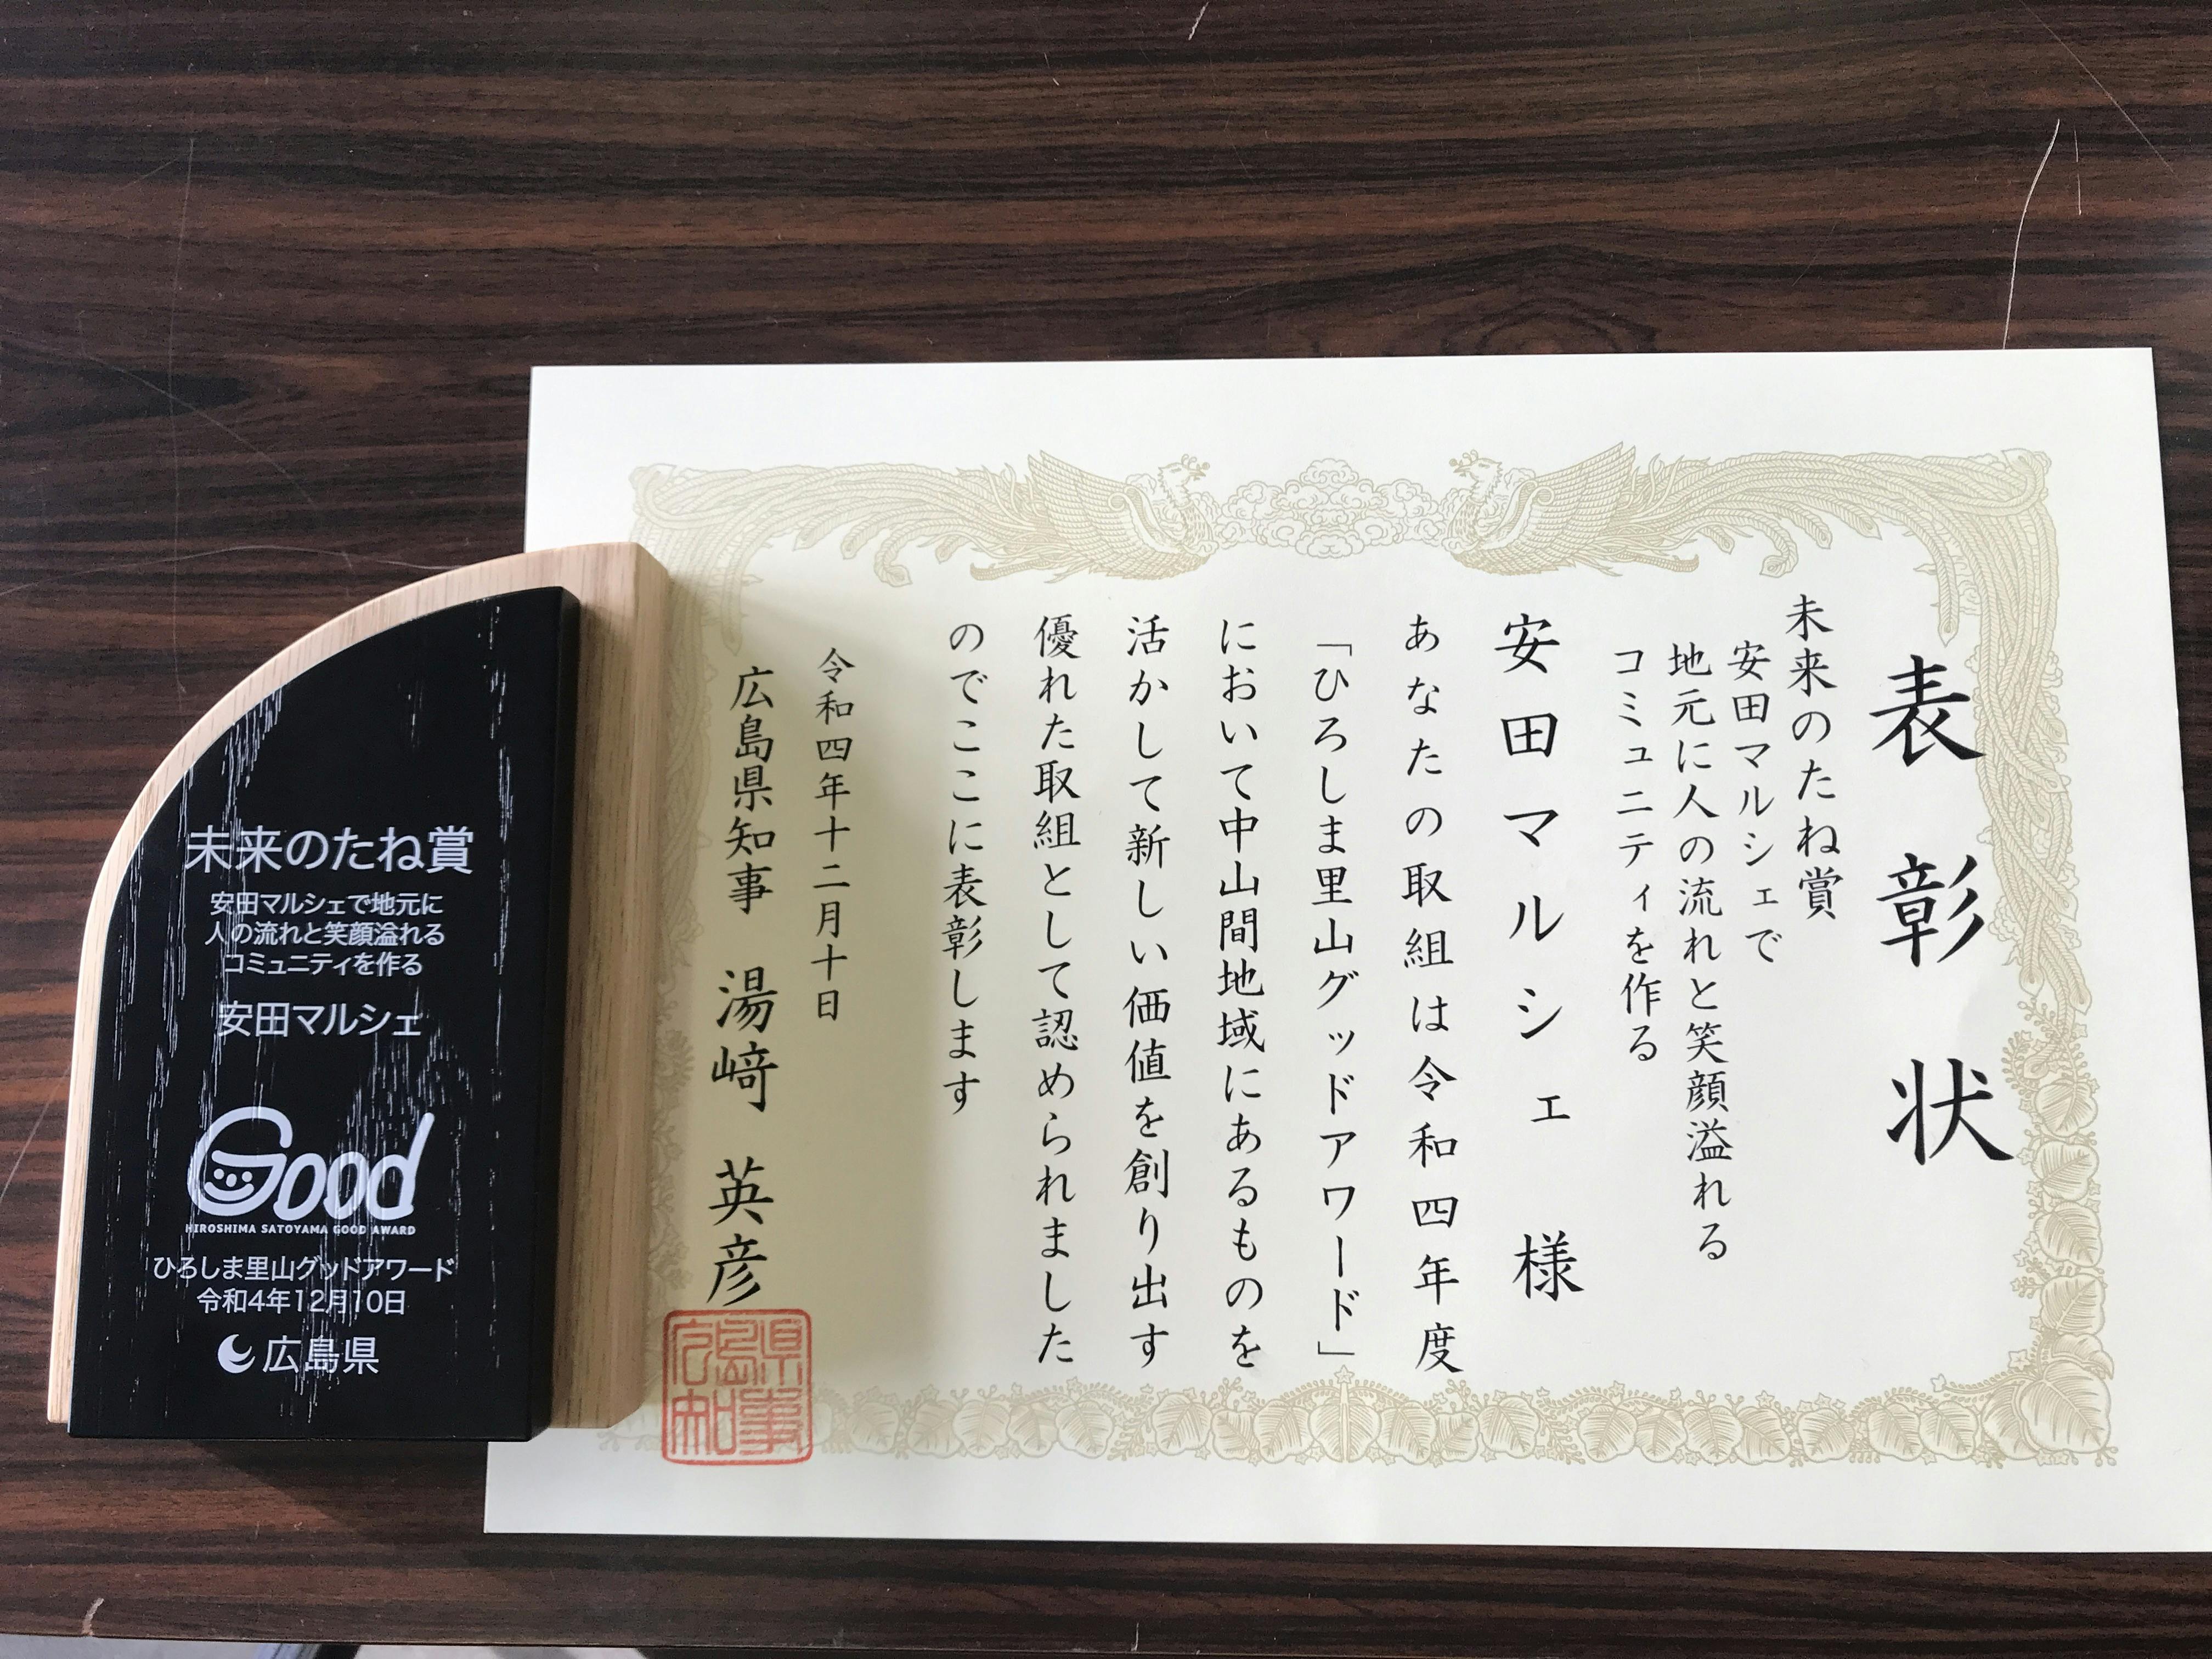 表彰状
未来のたね賞
安田マルシェで
地元に人の流れと笑顔溢れる
コミュニティを作る
安田マルシェ 様
あなたの取組は令和四年度
「ひろしま里山グッドアワード」
において中山間地域にあるものを
活かして新しい価値を創り出す
優れた取組として認められました
のでここに表彰します
令和四年十二月十日
広島県知事 湯﨑 英彦
広島県知事
未来のたね賞
安田マルシェで地元に
人の流れと笑顔溢れる
コミュニティを作る
安田マルシェ
Good
HIROSHIMA SATOYAMA GOOD AWARD
ひろしま里山グッドアワード
令和4年12月10日
広島県